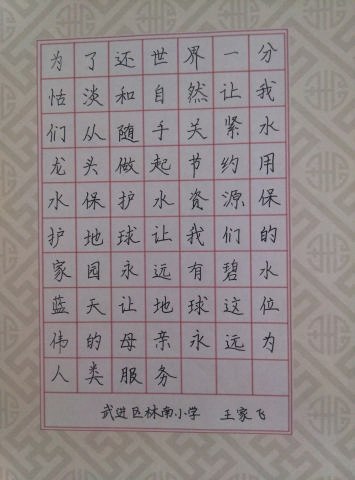 为了还世界一分
恬淡和自然让我
们从随手关紧水
龙头做起节约用
水保护水资源保
护地球让我们的
家园永远有碧水
蓝天让地球这位
伟的母亲永远为
人类服务
武进区林南小学 王家飞